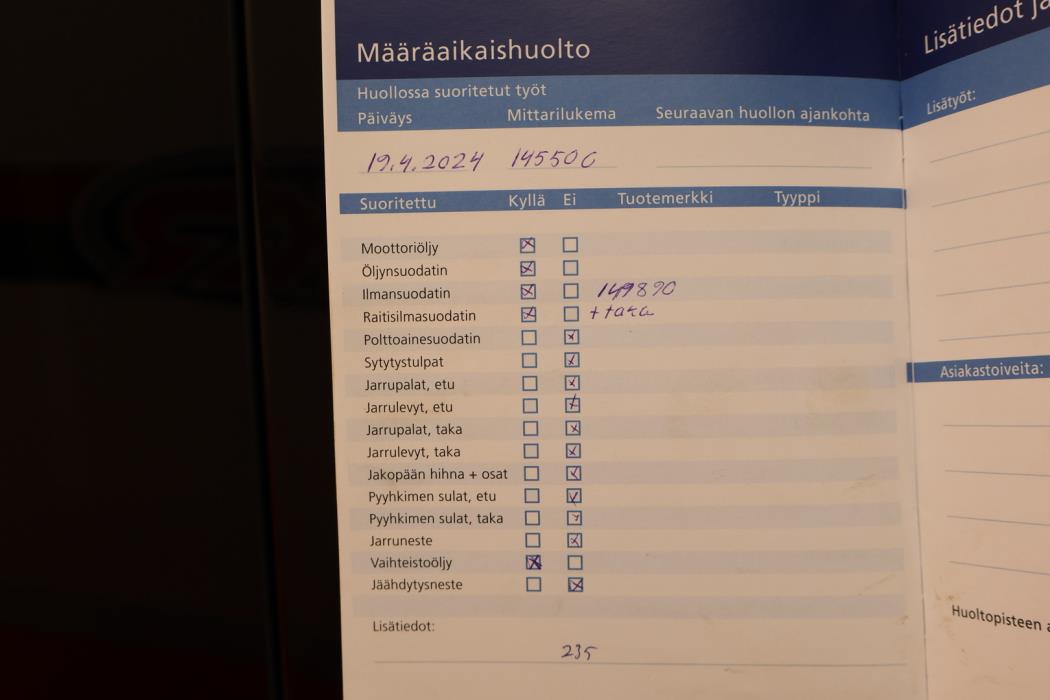 Määräaikaishuolto
Huollossa suoritetut työt
Päiväys Mittarilukema Seuraavan huollon ajankohta
19.4.2024 145500
Suoritettu Kyllä Ei Tuotemerkki Tyyppi
Moottoriöljy
Öljynsuodatin
Ilmansuodatin 149890
Raitisilmasuodatin + taka
Polttoainesuodatin
Sytytystulpat
Jarrupalat, etu
Jarrulevyt, etu
Jarrupalat, taka
Jarrulevyt, taka
Jakopään hihna + osat
Pyyhkimen sulat, etu
Pyyhkimen sulat, taka
Jarruneste
Vaihteistoöljy
Jäähdytysneste
Lisätiedot:
235
Lisätiedot
Lisätyöt:
Asiakastoiveita:
Huoltopisteen